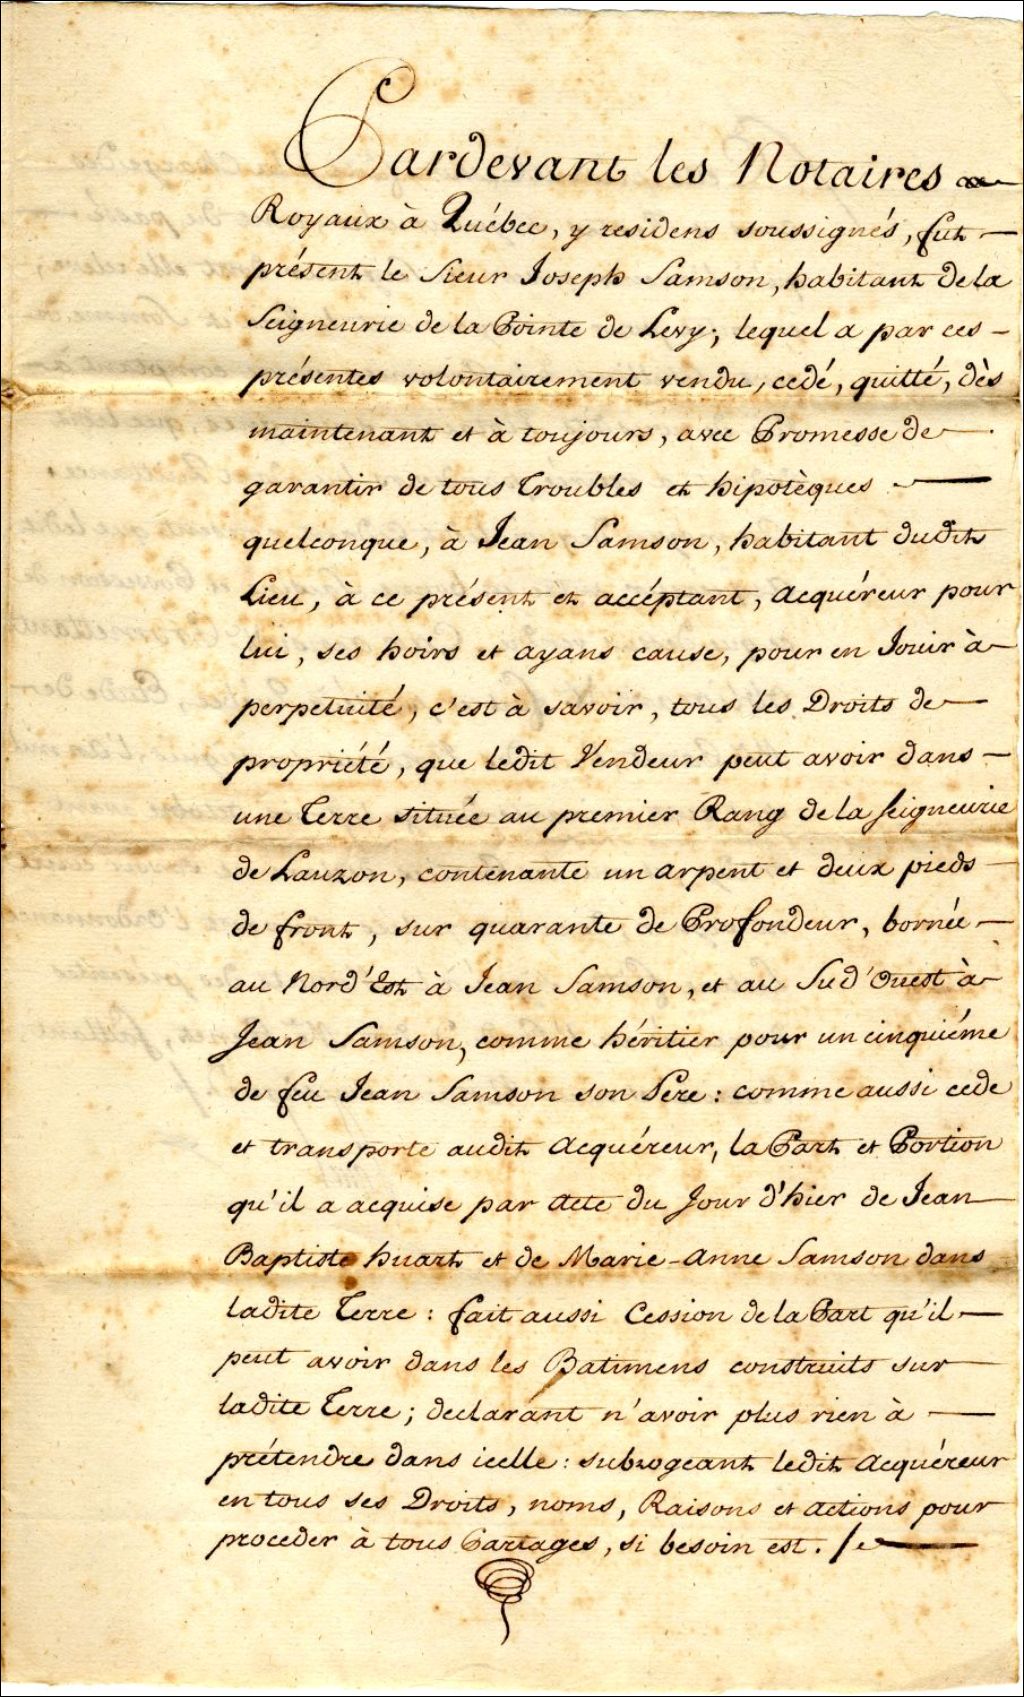 Pardevant les Notaires
Royaux à Québec, y residens soussignés, fut
présent le Sieur Joseph Samson, habitant de la
Seigneurie de la Pointe de Levy; lequel a par ces
présentes volontairement vendu, cedé, quitté, dès
maintenant et à toujours, avec Promesse de
garantir de tous Troubles et hipotèques
quelconque, à Jean Samson, habitant dudit
Lieu, à ce présent et accéptant, Acquéreur pour
lui, ses hoirs et ayans cause, pour en Jouir à
perpetuité, c'est à savoir, tous les Droits de
propriété, que ledit Vendeur peut avoir dans
une Terre située au premier Rang de la Seigneurie
de Lauzon, contenante un arpent et deux pieds
de front, sur quarante de Profondeur, bornée
au Nord'Est à Jean Samson, et au Sud'Ouest à
Jean Samson, comme héritier pour un cinquiéme
de feu Jean Samson son Pere: comme aussi cede
et transporte audit Acquéreur, la Part et Portion
qu'il a acquise par Acte du Jour d'hier de Jean
Baptiste huart et de Marie-Anne Samson dans
ladite Terre: fait aussi Cession de la Part qu'il
peut avoir dans les Batimens construits sur
ladite Terre; declarant n'avoir plus rien à
prétendre dans icelle: subrogeant ledit Acquéreur
en tous ses Droits, noms, Raisons et Actions pour
proceder à tous Partages, si besoin est.